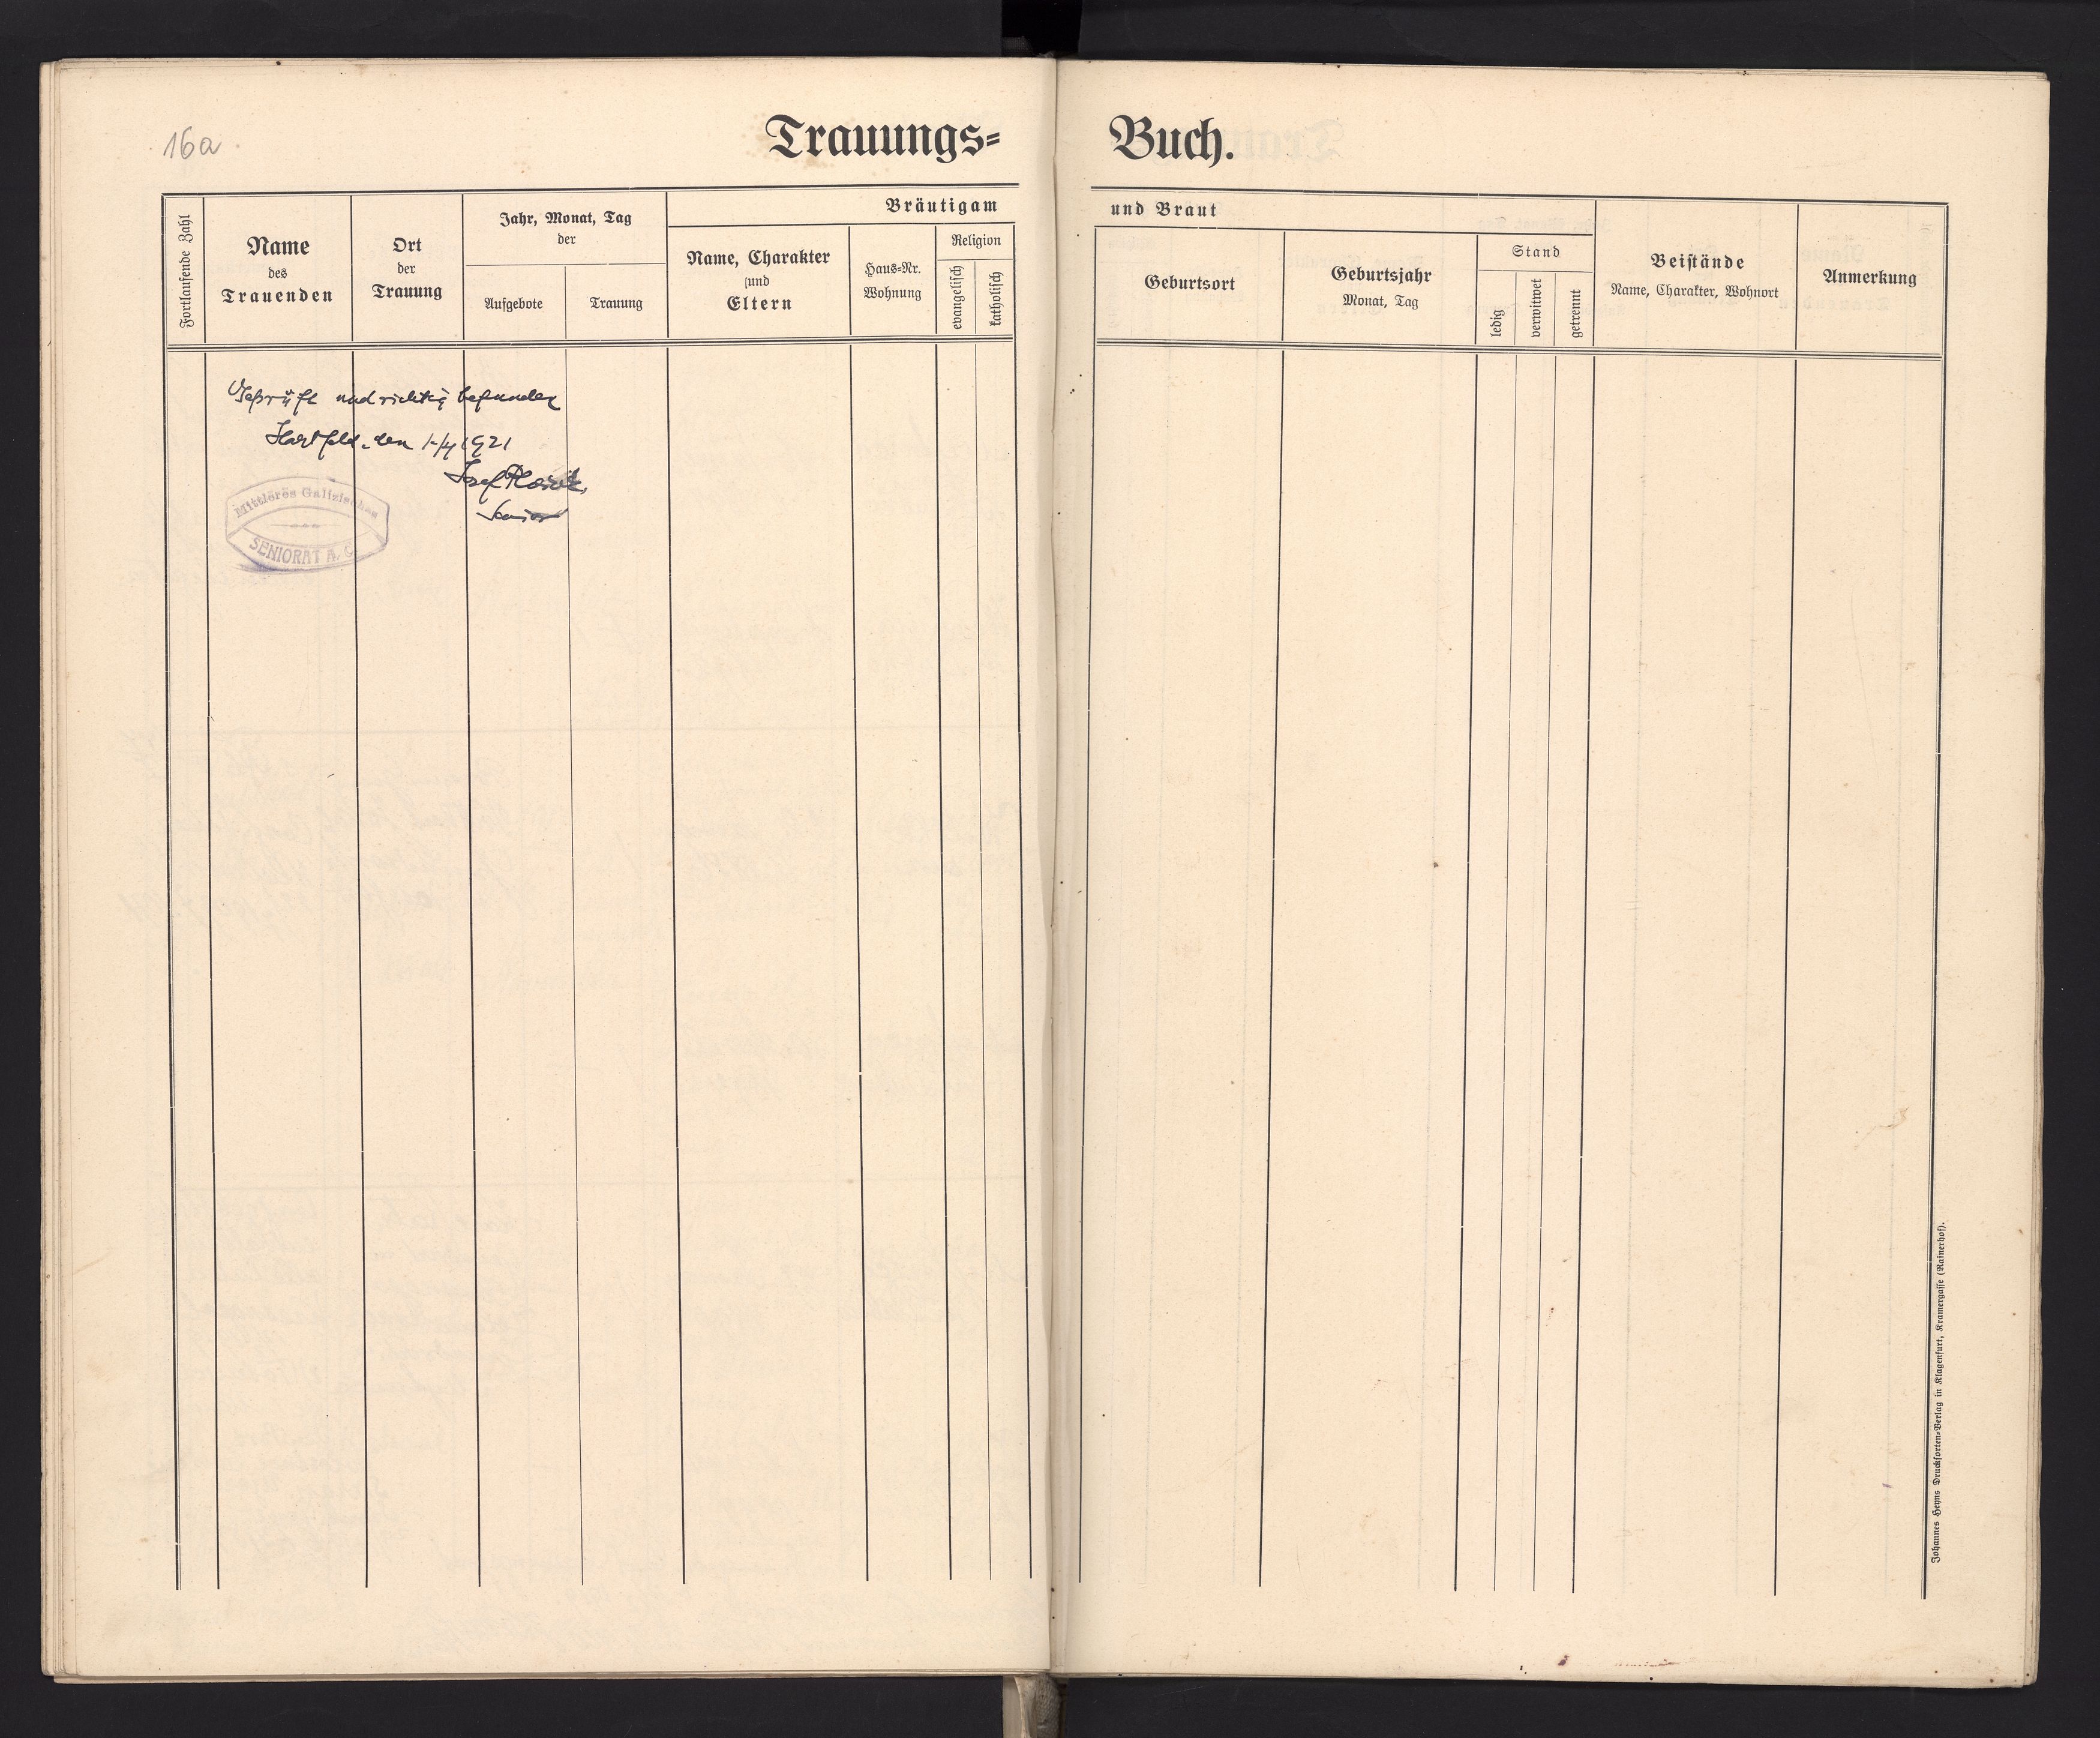 16a
Trauungs=
Buch.
Fortlaufende Zahl
Name
des
Trauenden
Ort
der
Trauung
Jahr, Monat, Tag
der
Aufgebote
Trauung
Bräutigam
Name, Charakter
und
Eltern
Haus=Nr.
Wohnung
Religion
evangelisch
katholisch
und Braut
Geburtsort
Geburtsjahr
Monat, Tag
Stand
ledig
verwitwet
getrennt
Beistände
Name, Charakter, Wohnort
Anmerkung
Geprüft und richtig befunden
Hartfeld, den 1921
Josef
Senior
Mittleres Galizisches
SENIORAT A. C.
Johannes Heyns Drucksorten=Verlag in Klagenfurt, Kramergasse (Rainerhof).